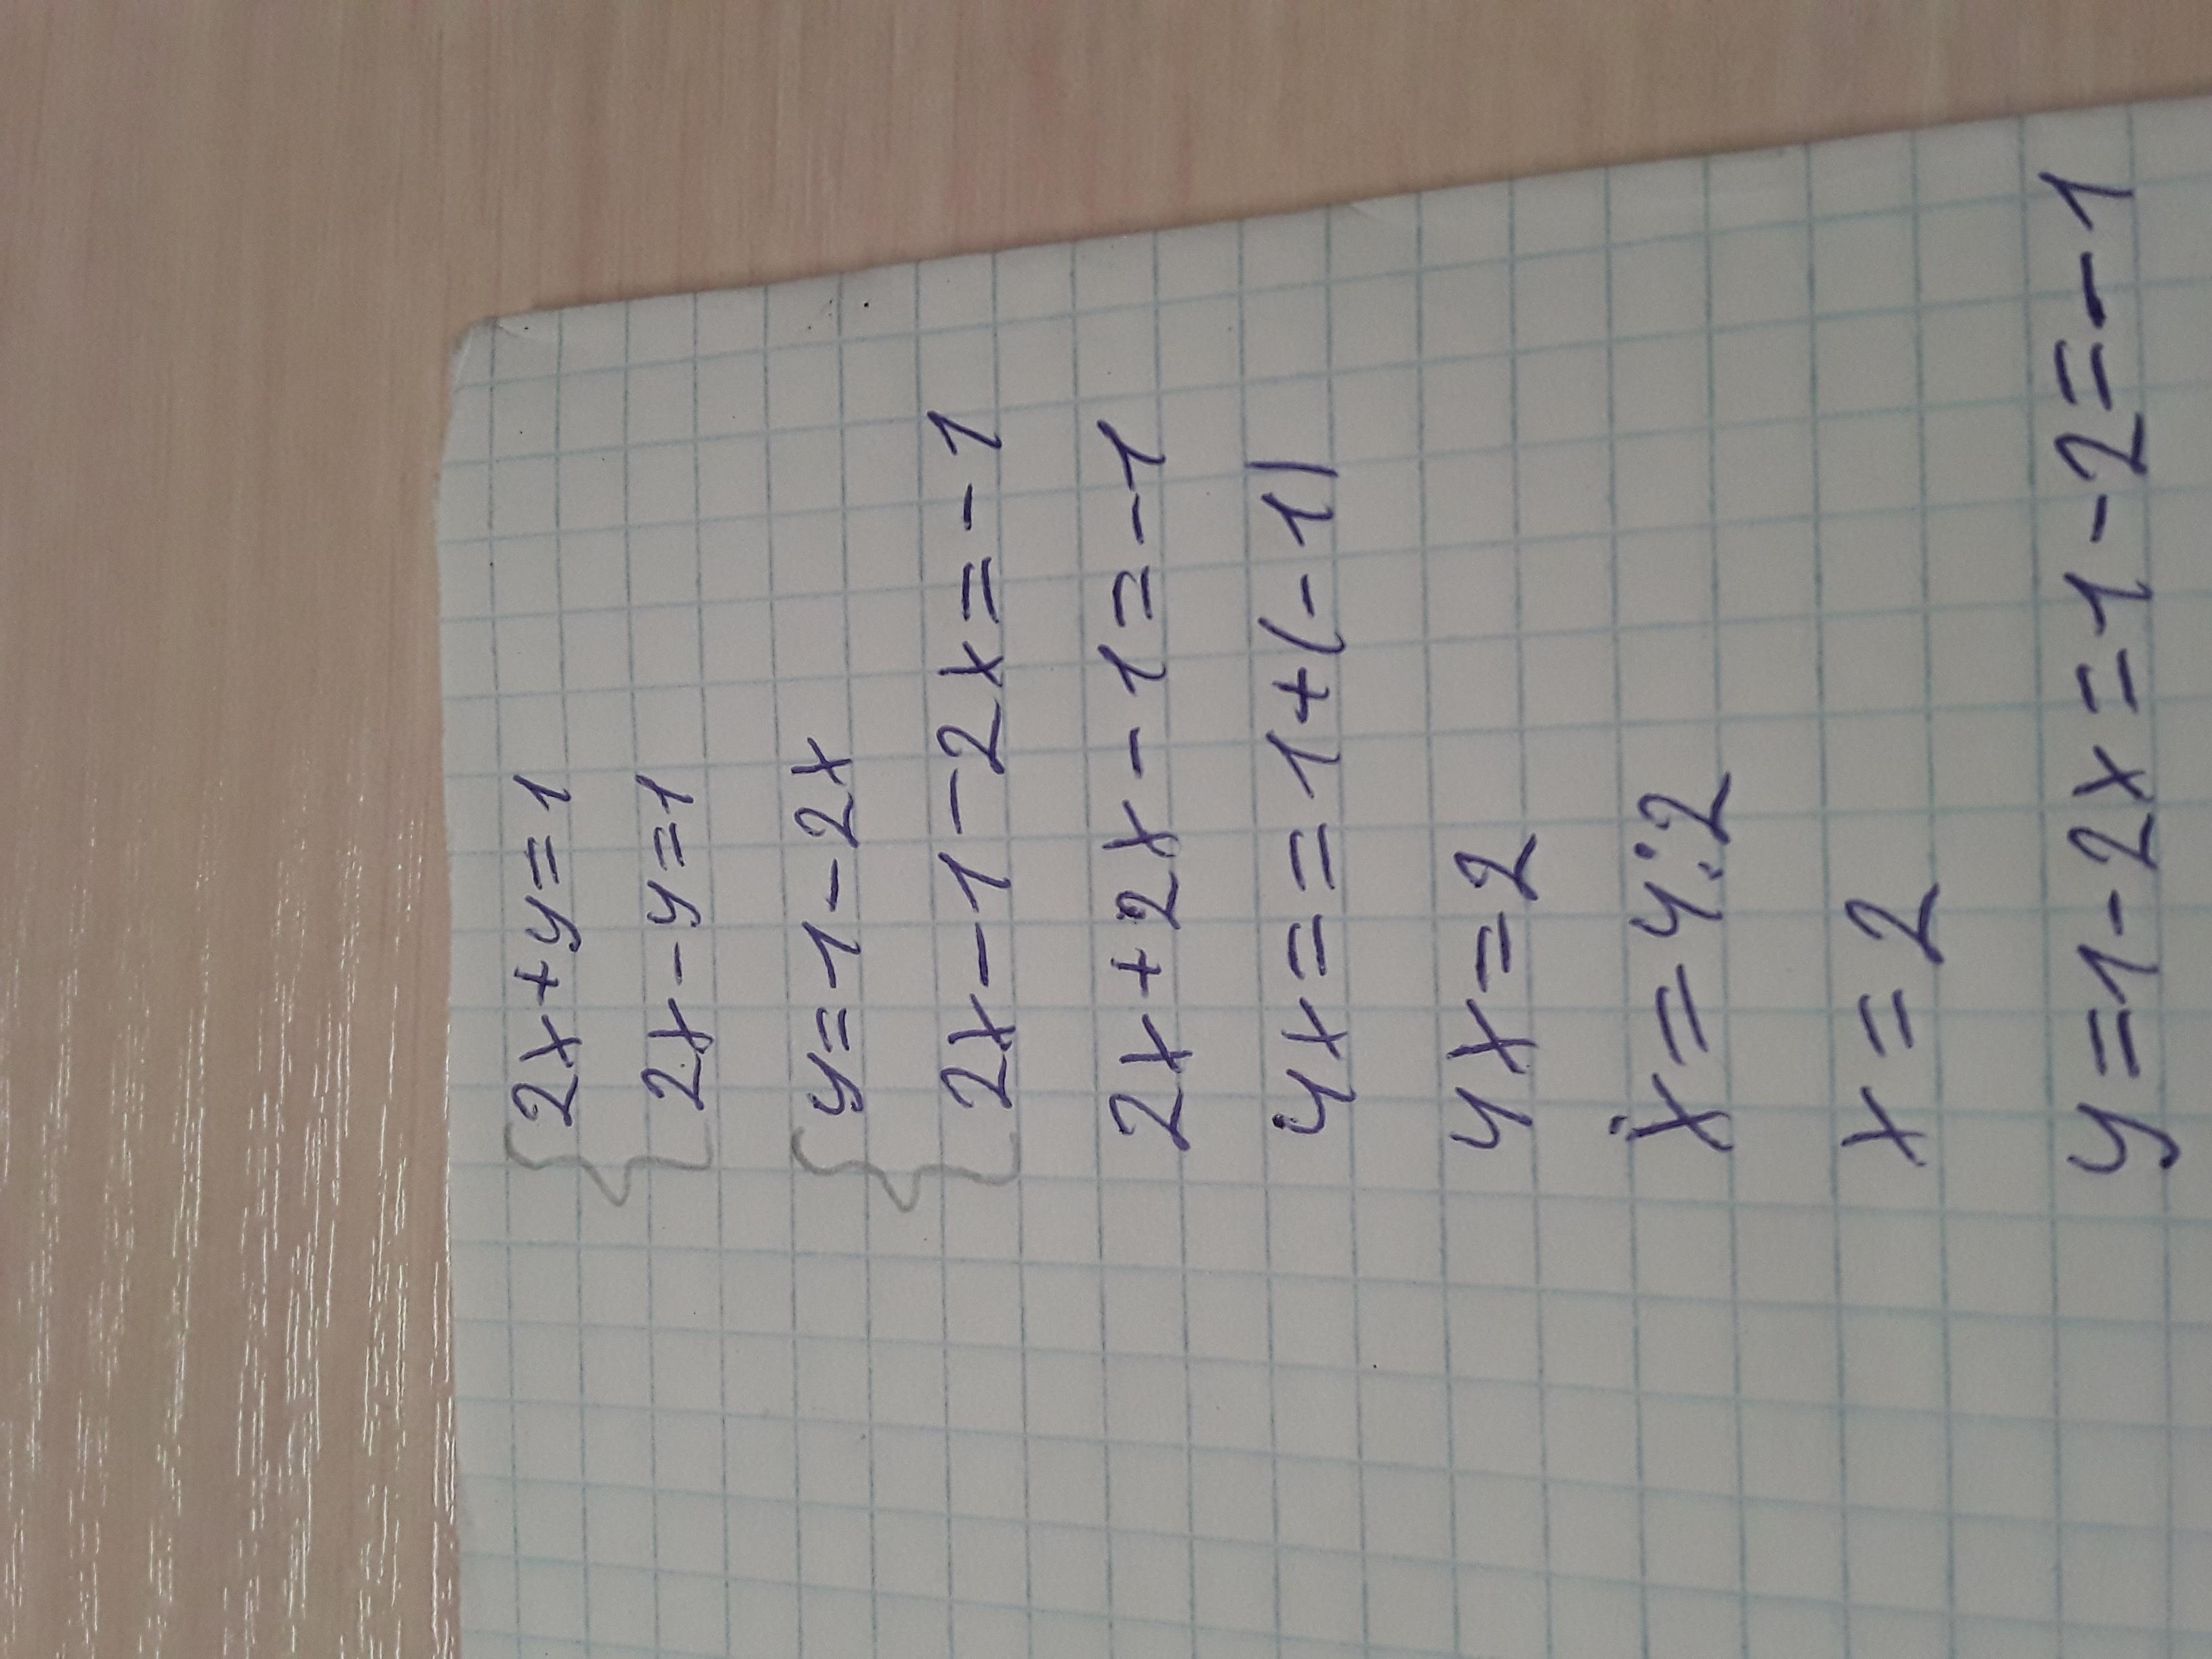 2x+y=1
2x-y=1
y=1-2x
2x-1-2x=-1
2x+2x-1=-1
4x==1+(-1)
4x=2
x=4:2
x=2
y=1-2x=1-2=-1